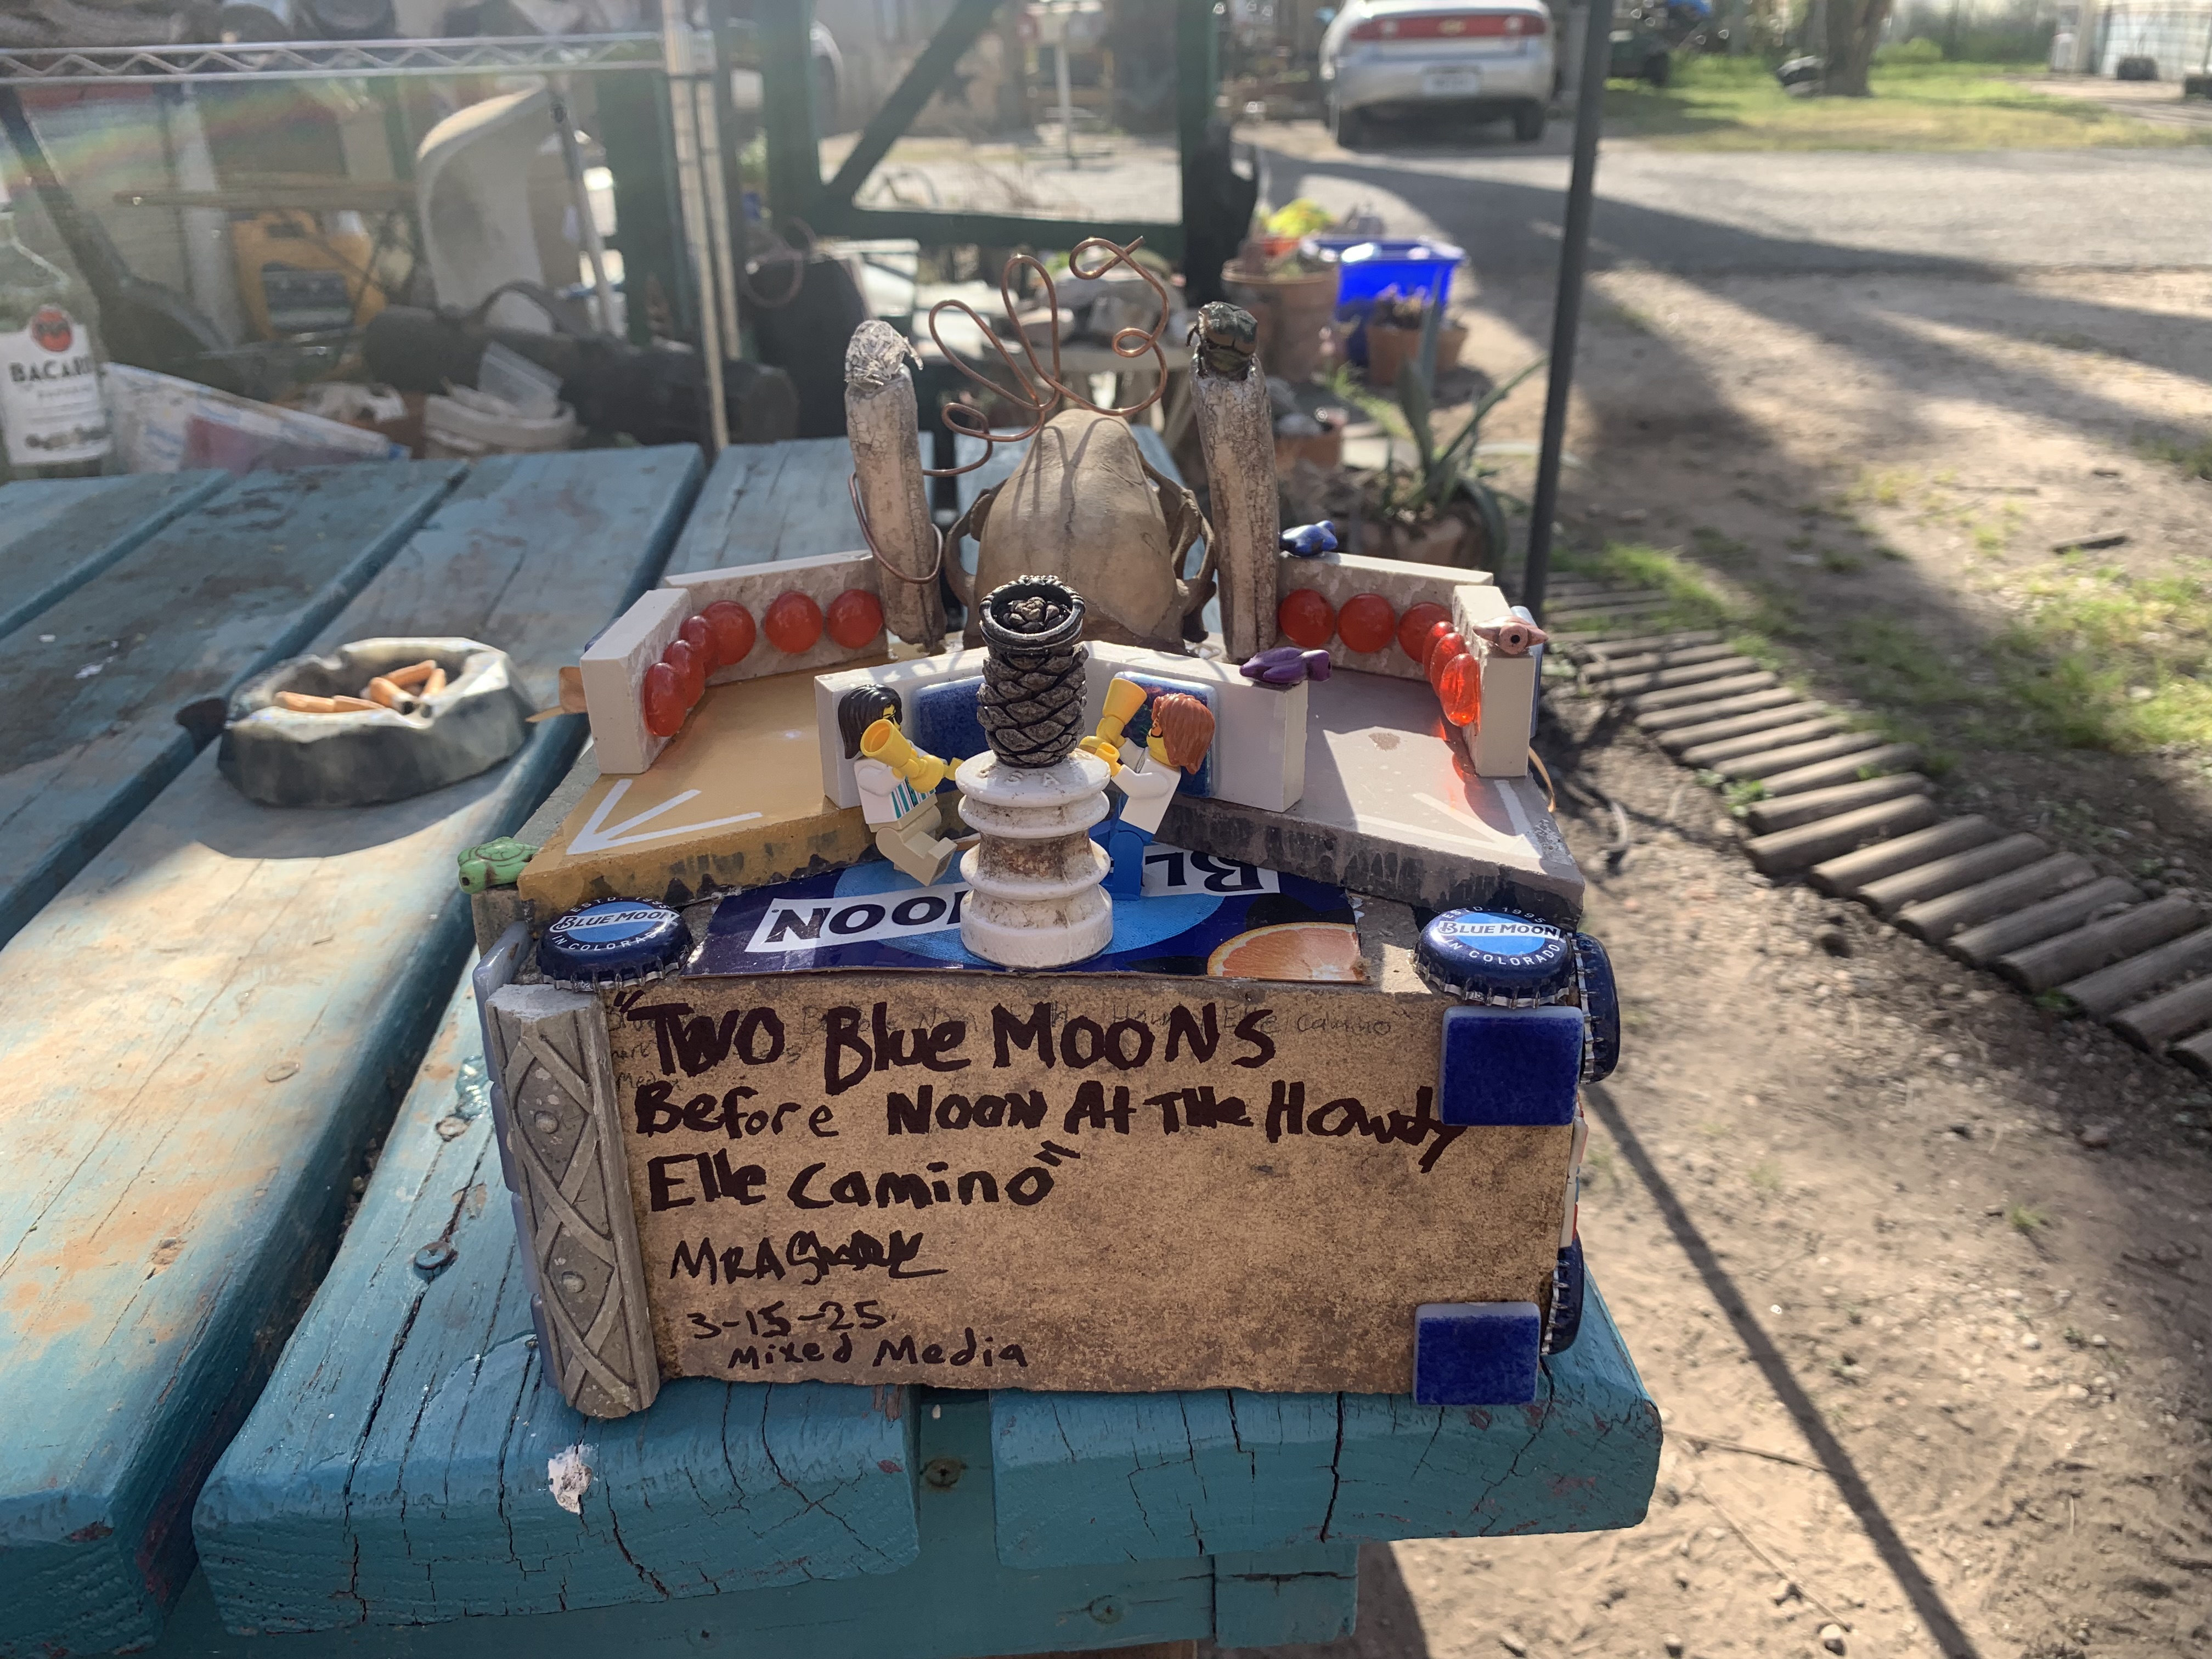 BACARDI
ESTD. 1995
BLUE MOON
IN COLORADO
BLUE
MOON
ESTD. 1995
BLUE MOON
IN COLORADO
"Two Blue MOONs
Before NOON At THe Howdy
Elle Camino"
3-15-25
Mixed Media